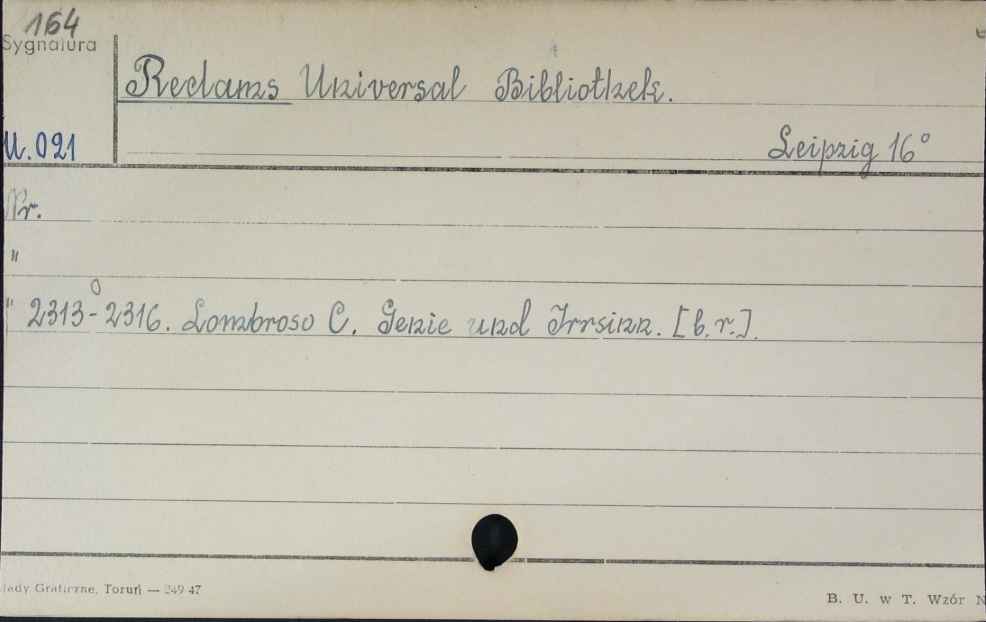 164
Sygnatura
Reclams Universal Bibliothek.
U. 021
Leipzig 16°
Nr.
"
" 2313-2316. Lombroso C. Genie und Irrsinn. [b.r.].
Graficzne, Toruń — 249 47
B. U. w T. Wzór N